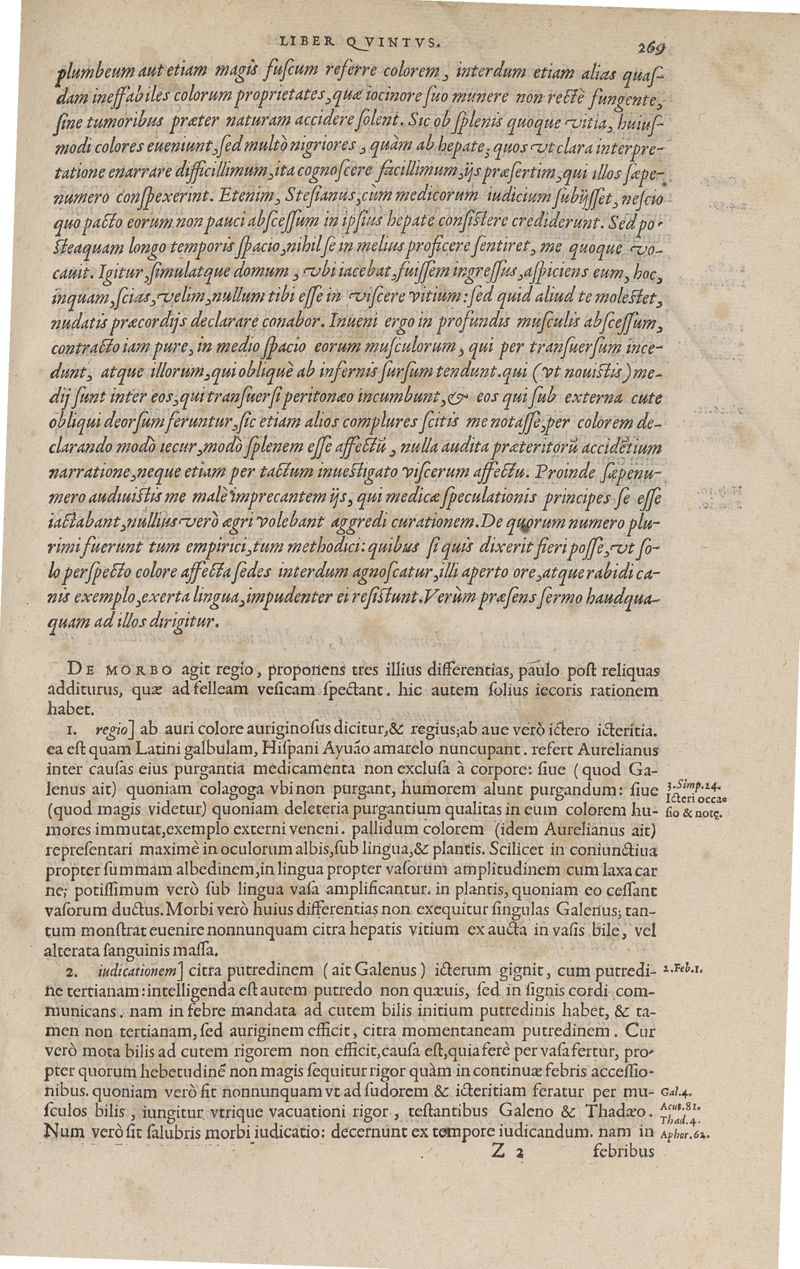 LIBER QVINTVS. 269
plumbeum aut etiam magis fuſcum referre colorem, interdum etiam alias quaſ-
dam ineffabiles colorum proprietates, quæ iocinore ſuo munere non rectè fungente,
ſine tumoribus præter naturam accidere ſolent. Sic ob ſplenis quoque vitia, huiuſ-
modi colores eueniunt, ſed multò nigriores, quàm ab hepate; quos vt clara interpre-
tatione enarrare difficillimum, ita cognoſcere facillimum, ijs præſertim, qui illos ſæpe-
numero conſpexerint. Etenim, Steſianus, cùm medicorum iudicium ſubijſſet, neſcio
quo pacto eorum non pauci abſceſſum in ipſius hepate conſiſtere crediderunt. Sed po-
ſteaquam longo temporis ſpacio, nihil ſe in melius proficere ſentiret, me quoque vo-
cauit. Igitur, ſimulatque domum, vbi iacebat, fuiſſem ingreſſus, aſpiciens eum, hoc,
inquam, ſcias, velim, nullum tibi eſſe in viſcere vitium: ſed quid aliud te moleſtet,
nudatis præcordijs declarare conabor. Inueni ergo in profundis muſculis abſceſſum,
contracto iam pure, in medio ſpacio eorum muſculorum, qui per tranſuerſum ince-
dunt, atque illorum, qui obliquè ab infernis ſurſum tendunt. qui (vt nouiſtis) me-
dij ſunt inter eos, qui tranſuerſi peritonæo incumbunt, & eos qui ſub externa cute
obliqui deorſum feruntur, ſic etiam alios complures ſcitis me notaſſe, per colorem de-
clarando modò iecur, modò ſplenem eſſe affectū, nulla audita præteritorū accidētium
narratione, neque etiam per tactum inueſtigato viſcerum affectu. Proinde ſæpenu-
mero audiuiſtis me malè imprecantem ijs, qui medicæ ſpeculationis principes ſe eſſe
iactabant, nullius verò ægri volebant aggredi curationem. De quorum numero plu-
rimi fuerunt tum empirici, tum methodici: quibus ſi quis dixerit fieri poſſe, vt ſo-
lo perſpecto colore affecta ſedes interdum agnoſcatur, illi aperto ore, atque rabidi ca-
nis exemplo, exerta lingua, impudenter ei reſiſtunt. Verùm præſens ſermo haudqua-
quam ad illos dirigitur.
DE MORBO agit regio, proponens tres illius differentias, paulo poſt reliquas
additurus, quæ ad felleam veſicam ſpectant. hic autem ſolius iecoris rationem
habet.
1. regio] ab auri colore auriginoſus dicitur, & regius; ab aue verò ictero icteritia.
ea eſt quam Latini galbulam, Hiſpani Ayuão amarelo nuncupant. refert Aurelianus
inter cauſas eius purgantia medicamenta non excluſa à corpore: ſiue (quod Ga-
lenus ait) quoniam colagoga vbi non purgant, humorem alunt purgandum: ſiue
(quod magis videtur) quoniam deleteria purgantium qualitas in eum colorem hu-
mores immutat, exemplo externi veneni. pallidum colorem (idem Aurelianus ait)
repreſentari maximè in oculorum albis, ſub lingua, & plantis. Scilicet in coniunctiua
propter ſummam albedinem, in lingua propter vaſorum amplitudinem cum laxa car
ne; potiſſimum verò ſub lingua vaſa amplificantur. in plantis, quoniam eo ceſſant
vaſorum ductus. Morbi verò huius differentias non exequitur ſingulas Galenus; tan-
tum monſtrat euenire nonnunquam citra hepatis vitium ex aucta in vaſis bile, vel
alterata ſanguinis maſſa.
3. Simp. 24.
Icteri occa-
ſio & notę.
2. iudicationem] citra putredinem (ait Galenus) icterum gignit, cum putredi-
ne tertianam: intelligenda eſt autem putredo non quæuis, ſed in ſignis cordi com-
municans. nam in febre mandata ad cutem bilis initium putredinis habet, & ta-
men non tertianam, ſed auriginem efficit, citra momentaneam putredinem. Cur
verò mota bilis ad cutem rigorem non efficit, cauſa eſt, quia ferè per vaſa fertur, pro-
pter quorum hebetudinē non magis ſequitur rigor quàm in continuæ febris acceſſio-
nibus. quoniam verò fit nonnunquam vt ad ſudorem & icteritiam feratur per mu-
ſculos bilis, iungitur vtrique vacuationi rigor, teſtantibus Galeno & Thadæo.
Num verò ſit ſalubris morbi iudicatio: decernunt ex tempore iudicandum. nam in
2. Feb. 1.
Gal. 4.
Acut. 81.
Thad. 4.
Aphor. 62.
Z 2 febribus